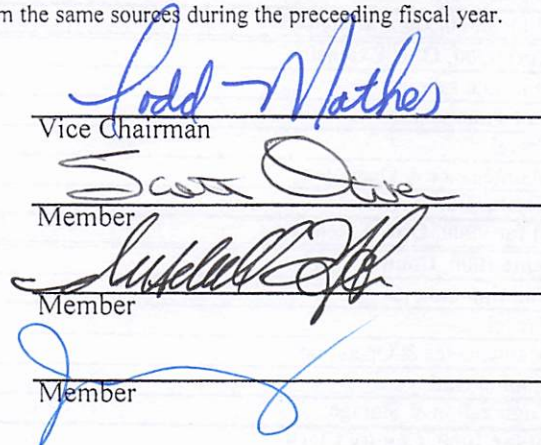 m the same sources during the preceeding fiscal year.
Todd Mathes
Vice Chairman
Scott Owen
Member
Member
Member